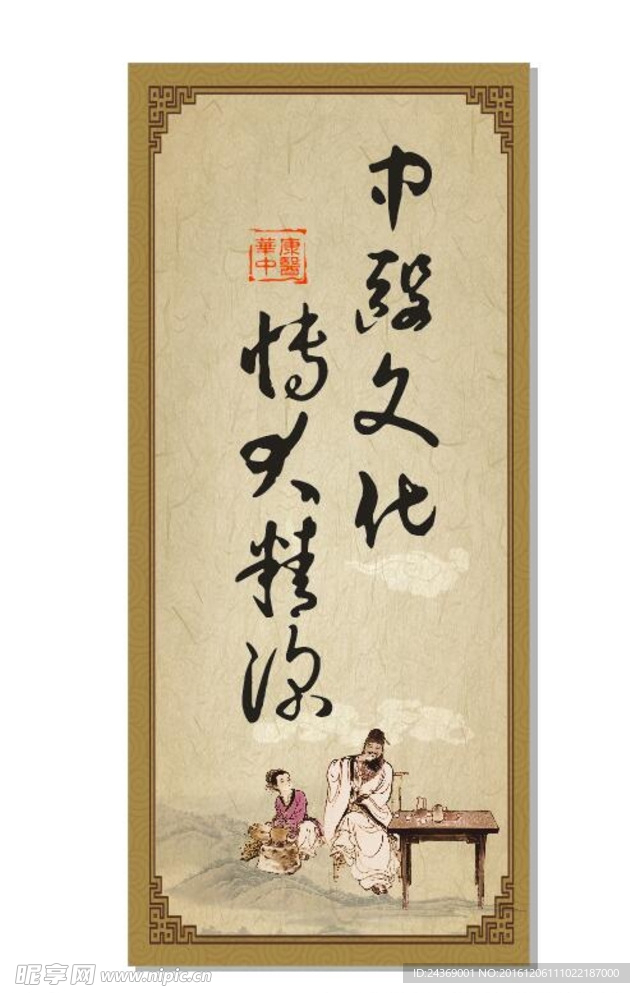 中醫文化
博大精深
康醫
華中
昵享网 www.nipic.cn
ID:24369001 NO:20161206111022187000